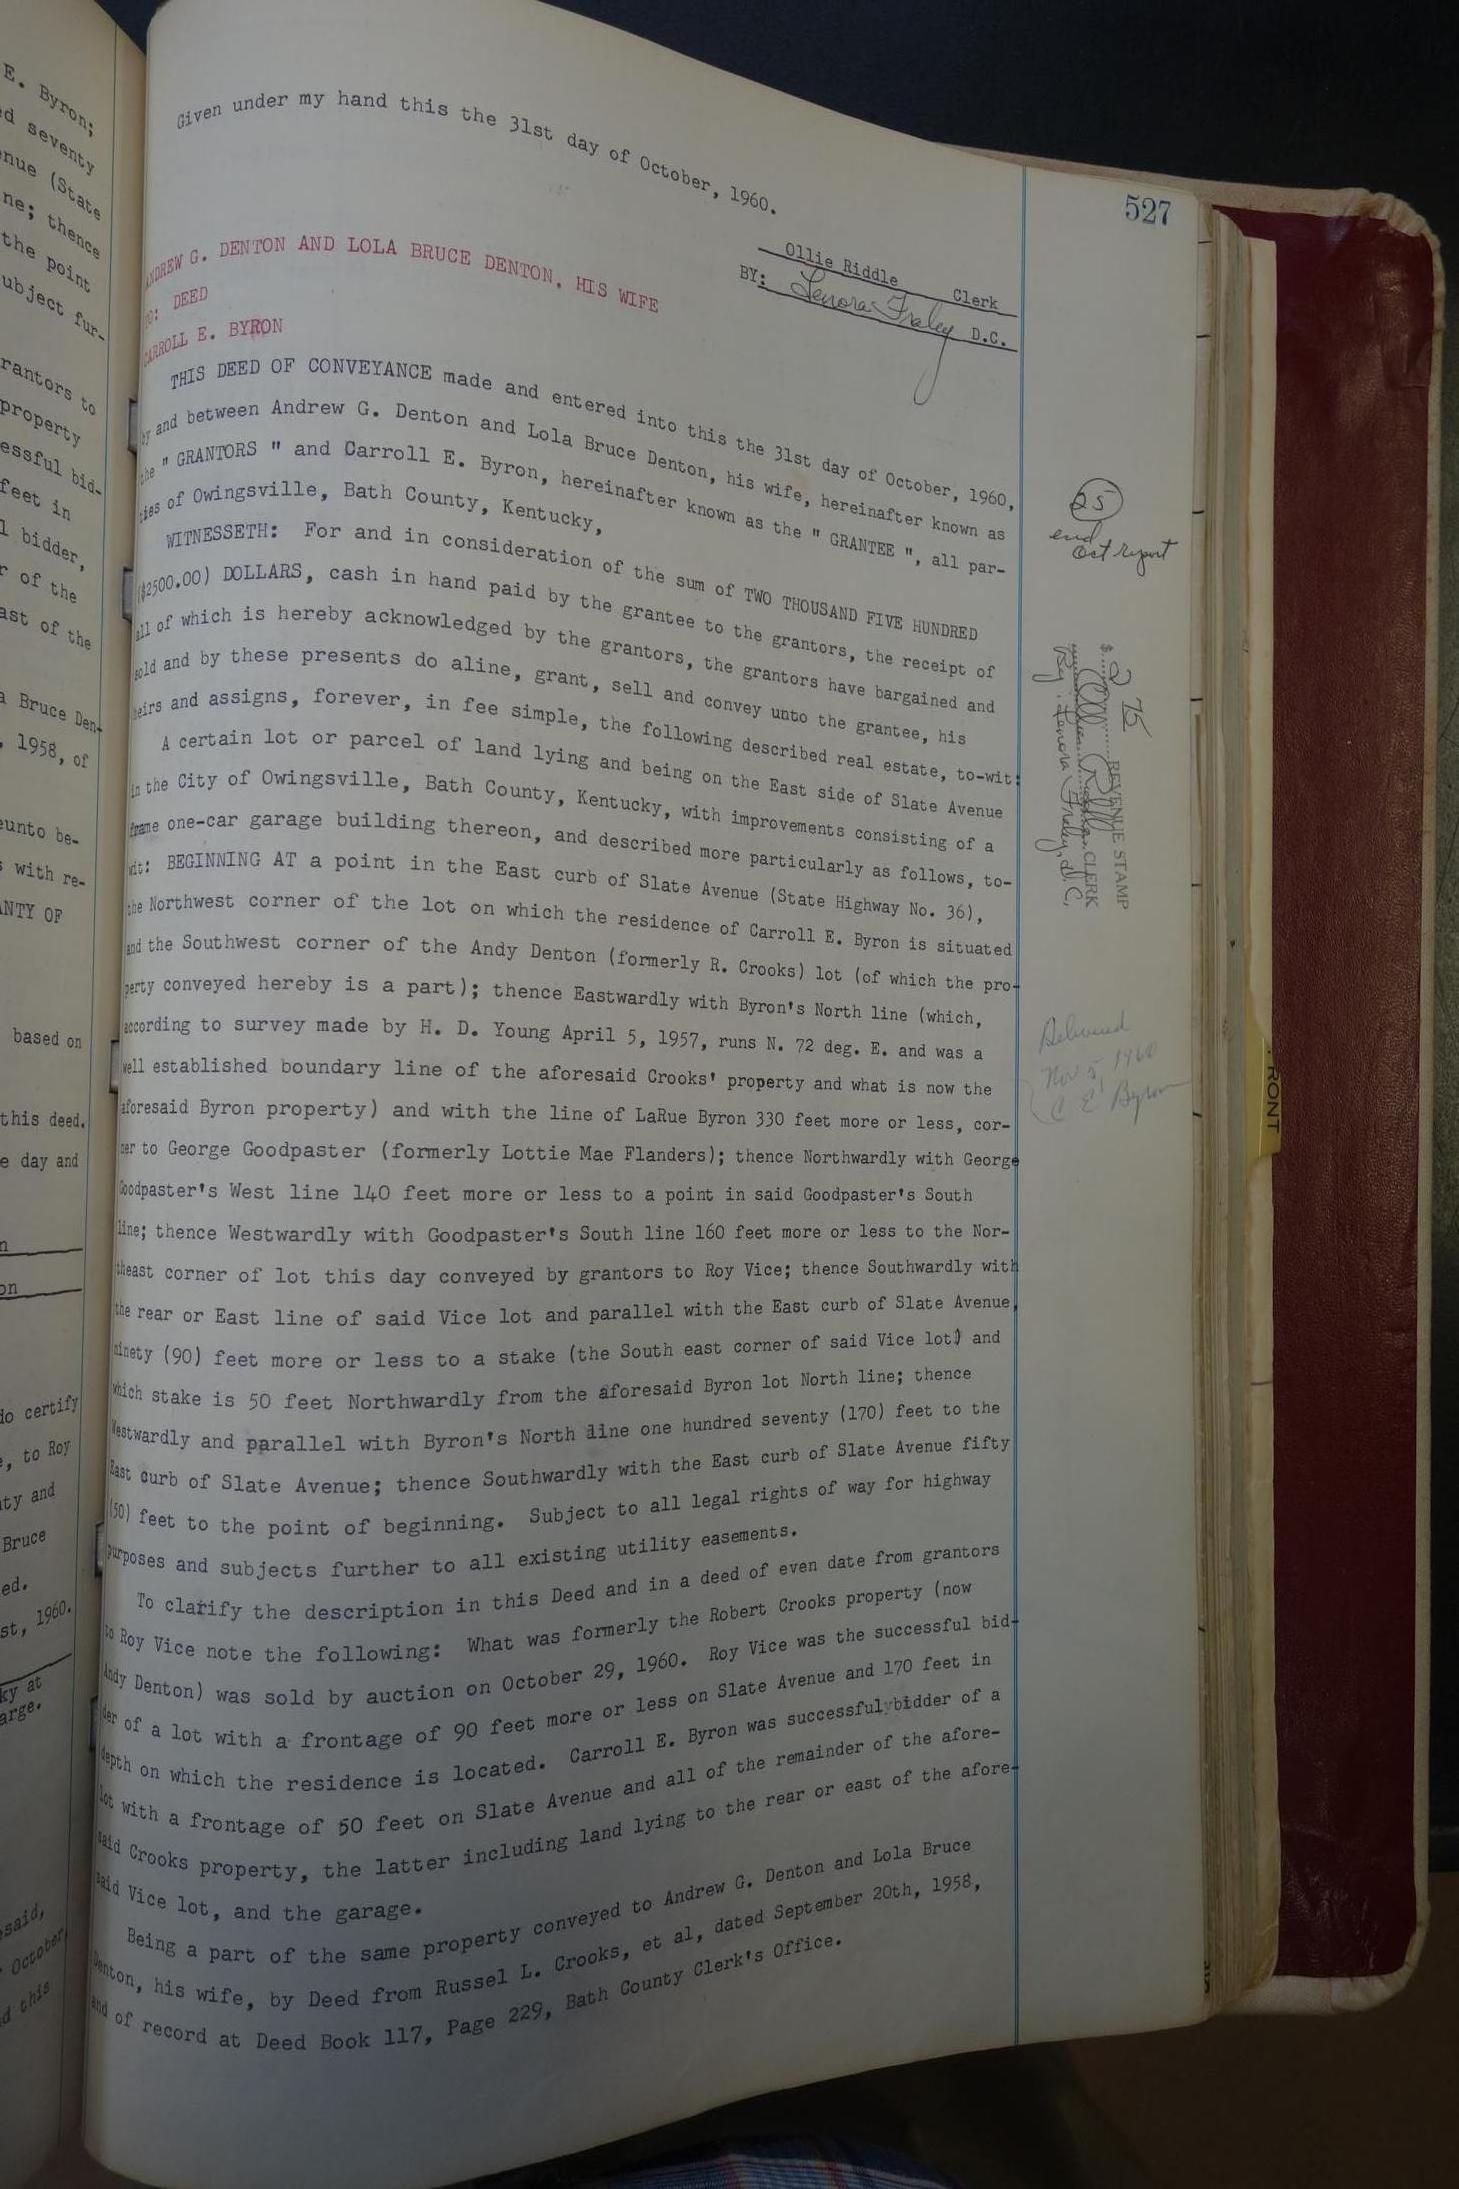 E. Byron;
ed seventy
enue (State
ne; thence
the point
ubject fur-
rantors to
property
essful bid-
feet in
l bidder,
r of the
ast of the
a Bruce Den-
, 1958, of
eunto be-
s with re-
ANTY OF
based on
this deed.
e day and
n
on
do certify
e, to Roy
nty and
Bruce
ed.
st, 1960.
ky at
arge.
esaid,
October
d this
527
Given under my hand this the 31st day of October, 1960.
Ollie Riddle Clerk
BY: Lenora Fraley D.C.
ANDREW G. DENTON AND LOLA BRUCE DENTON, HIS WIFE
TO: DEED
CARROLL E. BYRON
THIS DEED OF CONVEYANCE made and entered into this the 31st day of October, 1960,
by and between Andrew G. Denton and Lola Bruce Denton, his wife, hereinafter known as
the " GRANTORS " and Carroll E. Byron, hereinafter known as the " GRANTEE ", all par-
ties of Owingsville, Bath County, Kentucky,
WITNESSETH: For and in consideration of the sum of TWO THOUSAND FIVE HUNDRED
($2500.00) DOLLARS, cash in hand paid by the grantee to the grantors, the receipt of
all of which is hereby acknowledged by the grantors, the grantors have bargained and
sold and by these presents do aline, grant, sell and convey unto the grantee, his
heirs and assigns, forever, in fee simple, the following described real estate, to-wit:
A certain lot or parcel of land lying and being on the East side of Slate Avenue
in the City of Owingsville, Bath County, Kentucky, with improvements consisting of a
frame one-car garage building thereon, and described more particularly as follows, to-
wit: BEGINNING AT a point in the East curb of Slate Avenue (State Highway No. 36),
the Northwest corner of the lot on which the residence of Carroll E. Byron is situated
and the Southwest corner of the Andy Denton (formerly R. Crooks) lot (of which the pro-
perty conveyed hereby is a part); thence Eastwardly with Byron's North line (which,
according to survey made by H. D. Young April 5, 1957, runs N. 72 deg. E. and was a
well established boundary line of the aforesaid Crooks' property and what is now the
aforesaid Byron property) and with the line of LaRue Byron 330 feet more or less, cor-
ner to George Goodpaster (formerly Lottie Mae Flanders); thence Northwardly with George
Goodpaster's West line 140 feet more or less to a point in said Goodpaster's South
line; thence Westwardly with Goodpaster's South line 160 feet more or less to the Nor-
theast corner of lot this day conveyed by grantors to Roy Vice; thence Southwardly with
the rear or East line of said Vice lot and parallel with the East curb of Slate Avenue,
ninety (90) feet more or less to a stake (the South east corner of said Vice lot) and
which stake is 50 feet Northwardly from the aforesaid Byron lot North line; thence
Westwardly and parallel with Byron's North line one hundred seventy (170) feet to the
East curb of Slate Avenue; thence Southwardly with the East curb of Slate Avenue fifty
(50) feet to the point of beginning. Subject to all legal rights of way for highway
purposes and subjects further to all existing utility easements.
To clarify the description in this Deed and in a deed of even date from grantors
to Roy Vice note the following: What was formerly the Robert Crooks property (now
Andy Denton) was sold by auction on October 29, 1960. Roy Vice was the successful bid-
der of a lot with a frontage of 90 feet more or less on Slate Avenue and 170 feet in
depth on which the residence is located. Carroll E. Byron was successful bidder of a
lot with a frontage of 50 feet on Slate Avenue and all of the remainder of the afore-
said Crooks property, the latter including land lying to the rear or east of the afore-
said Vice lot, and the garage.
Being a part of the same property conveyed to Andrew G. Denton and Lola Bruce
Denton, his wife, by Deed from Russel L. Crooks, et al, dated September 20th, 1958,
and of record at Deed Book 117, Page 229, Bath County Clerk's Office.
25
end
Oct report
$ 2 75 REVENUE STAMP
Ollie Riddle CLERK
By: Lenora Fraley, D.C.
Delivered
Nov 5, 1960
C E Byron
RONT